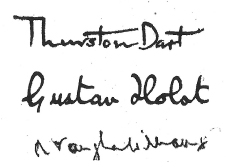 Thurston Dart
Gustav Holst
R Vaughan Williams